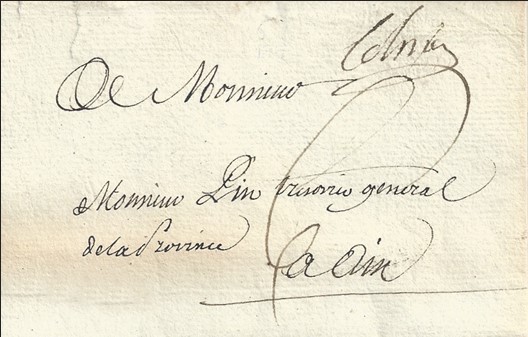 De Monsieur
Monsieur Pin tresorier general
de la Province
a Aix